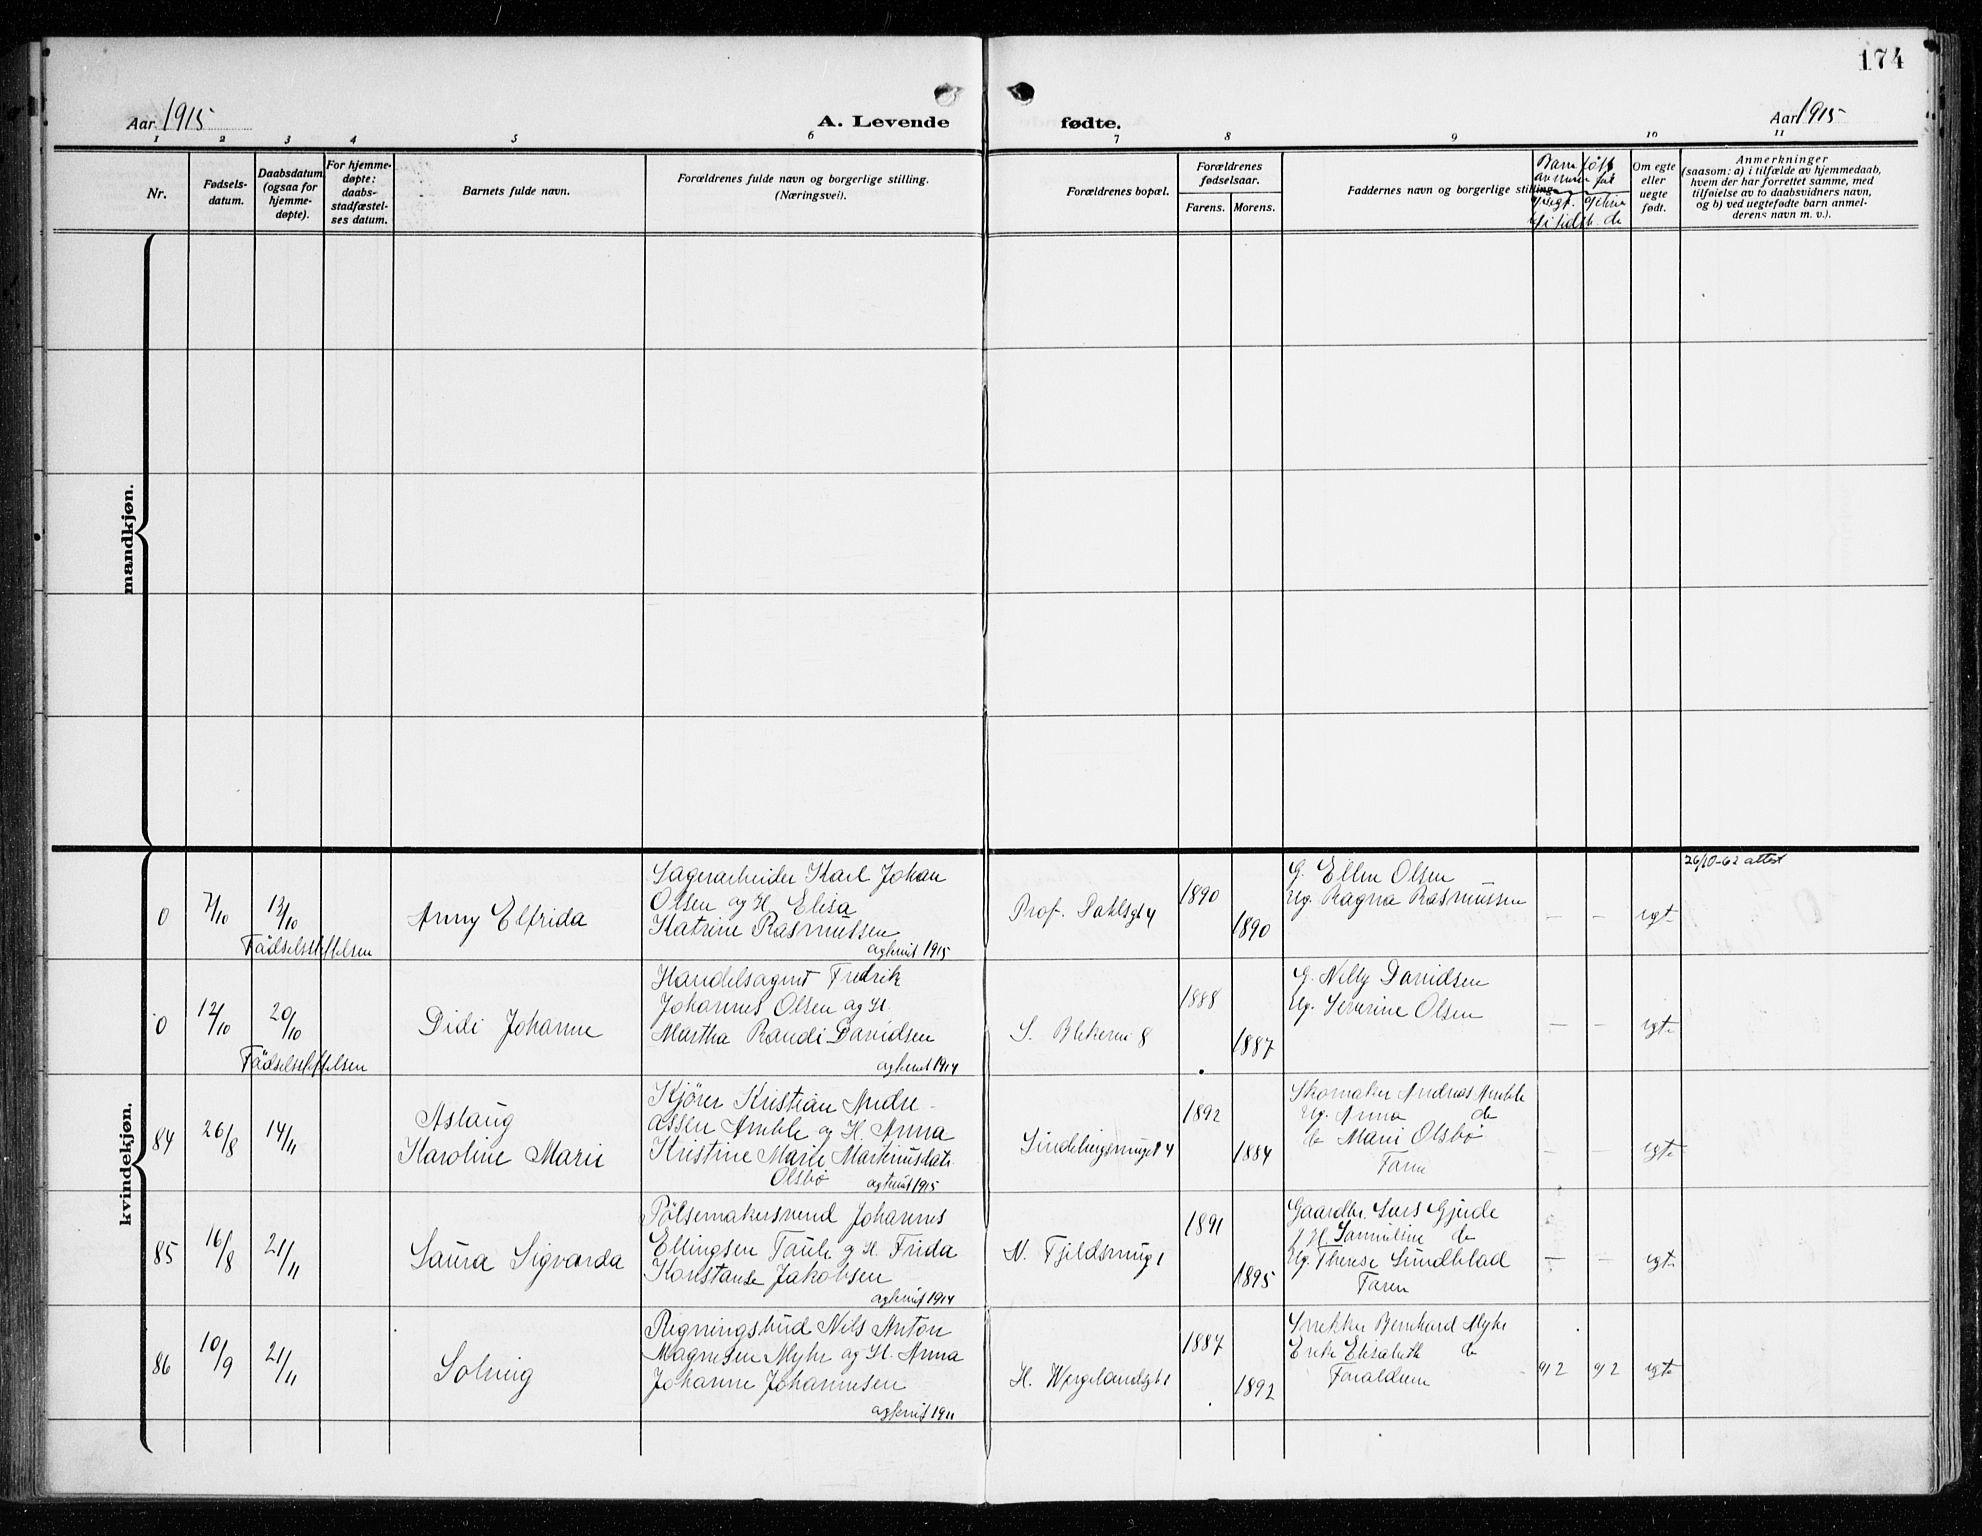 174
Aar 1915
A. Levende
fødte.
Aar 1915
1 2 3 4 5 6 7 8 9 10 11
Nr.
Fødsels-
datum.
Daabsdatum
(ogsaa for
hjemme-
døpte).
For hjemme-
døpte:
daabs-
stadfæstel-
ses datum.
Barnets fulde navn.
Forældrenes fulde navn og borgerlige stilling.
(Næringsvei).
Forældrenes bopæl.
Forældrenes
fødselsaar.
Farens. Morens.
Faddernes navn og borgerlige stilling.
Om egte
eller
uegte
født.
Anmerkninger
(saasom: a) i tilfælde av hjemmedaab,
hvem der har forrettet samme, med
tilføielse av to daabsvidners navn,
og b) ved uegtefødte barn anmel-
derens navn m. v.).
mandkjøn.
kvindekjøn.
0
7/10
13/10
Fødselsstiftelsen
Anny Elfrida
Lagerarbeider Karl Johan
Olsen og H. Elisa
Katrine Rasmussen
agteviet 1915
Prof. Dahlsgt 4
1890
1890
G. Ellen Olsen
Ug. Ragna Rasmussen
— —
egte
26/10-62 attest
0
12/10
20/10
Fødselsstiftelsen
Didi Johanne
Handelsagent Fredrik
Johannes Olsen og H.
Martha Randi Davidsen
agteviet 1914
S. Blekevei 8
1888
1887
G. Nelly Davidsen
Ug. Severine Olsen
— —
egte
84
26/8
14/11
Aslaug
Karoline Marie
Kjører Kristian Andre-
assen Amble og H. Anna
Kristine Marie Markusdatr.
Olsbø
agteviet 1915
1892
1884
Skomaker Andreas Amble
Ug. Anna do
do Marie Olsbø
Faren
— —
egte
85
16/8
21/11
Laura Sigvarda
Pølsemakersvend Johannes
Ellingsen Taule og H. Frida
Konstanse Jakobsen
agteviet 1914
N. Fjeldsmug 1
1891
1895
Gaardbr. Lars Gjerde
g H. Samueline do
Ug. Therese Lundblad
Faren
— —
egte
86
10/9
21/11
Solveig
Regningsbud Nils Anton
Magnesen Myhr og H. Anna
Johanne Johannesen
agteviet 1911
H. Wergelandsgt 1
1887
1892
Snekker Bernhard Myhr
Enke Elisabeth do
Forældrene
egte